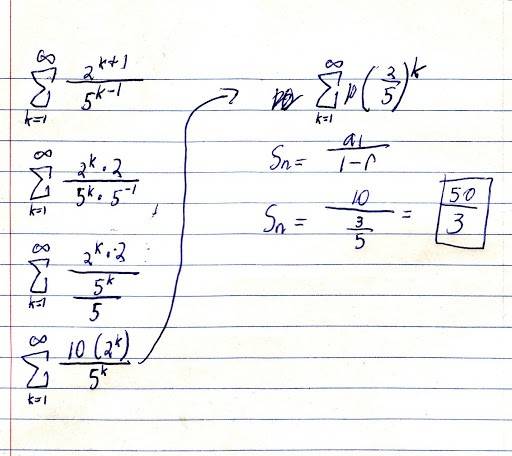 ∞ ∑ k=1 2^(k+1) / 5^(k-1)
∞ ∑ k=1 (2^k · 2) / (5^k · 5^-1)
∞ ∑ k=1 (2^k · 2) / (5^k / 5)
∞ ∑ k=1 10(2^k) / 5^k
→ ∞ ∑ k=1 10(2/5)^k
Sn = a1 / (1-r)
Sn = 10 / (3/5) = 50/3